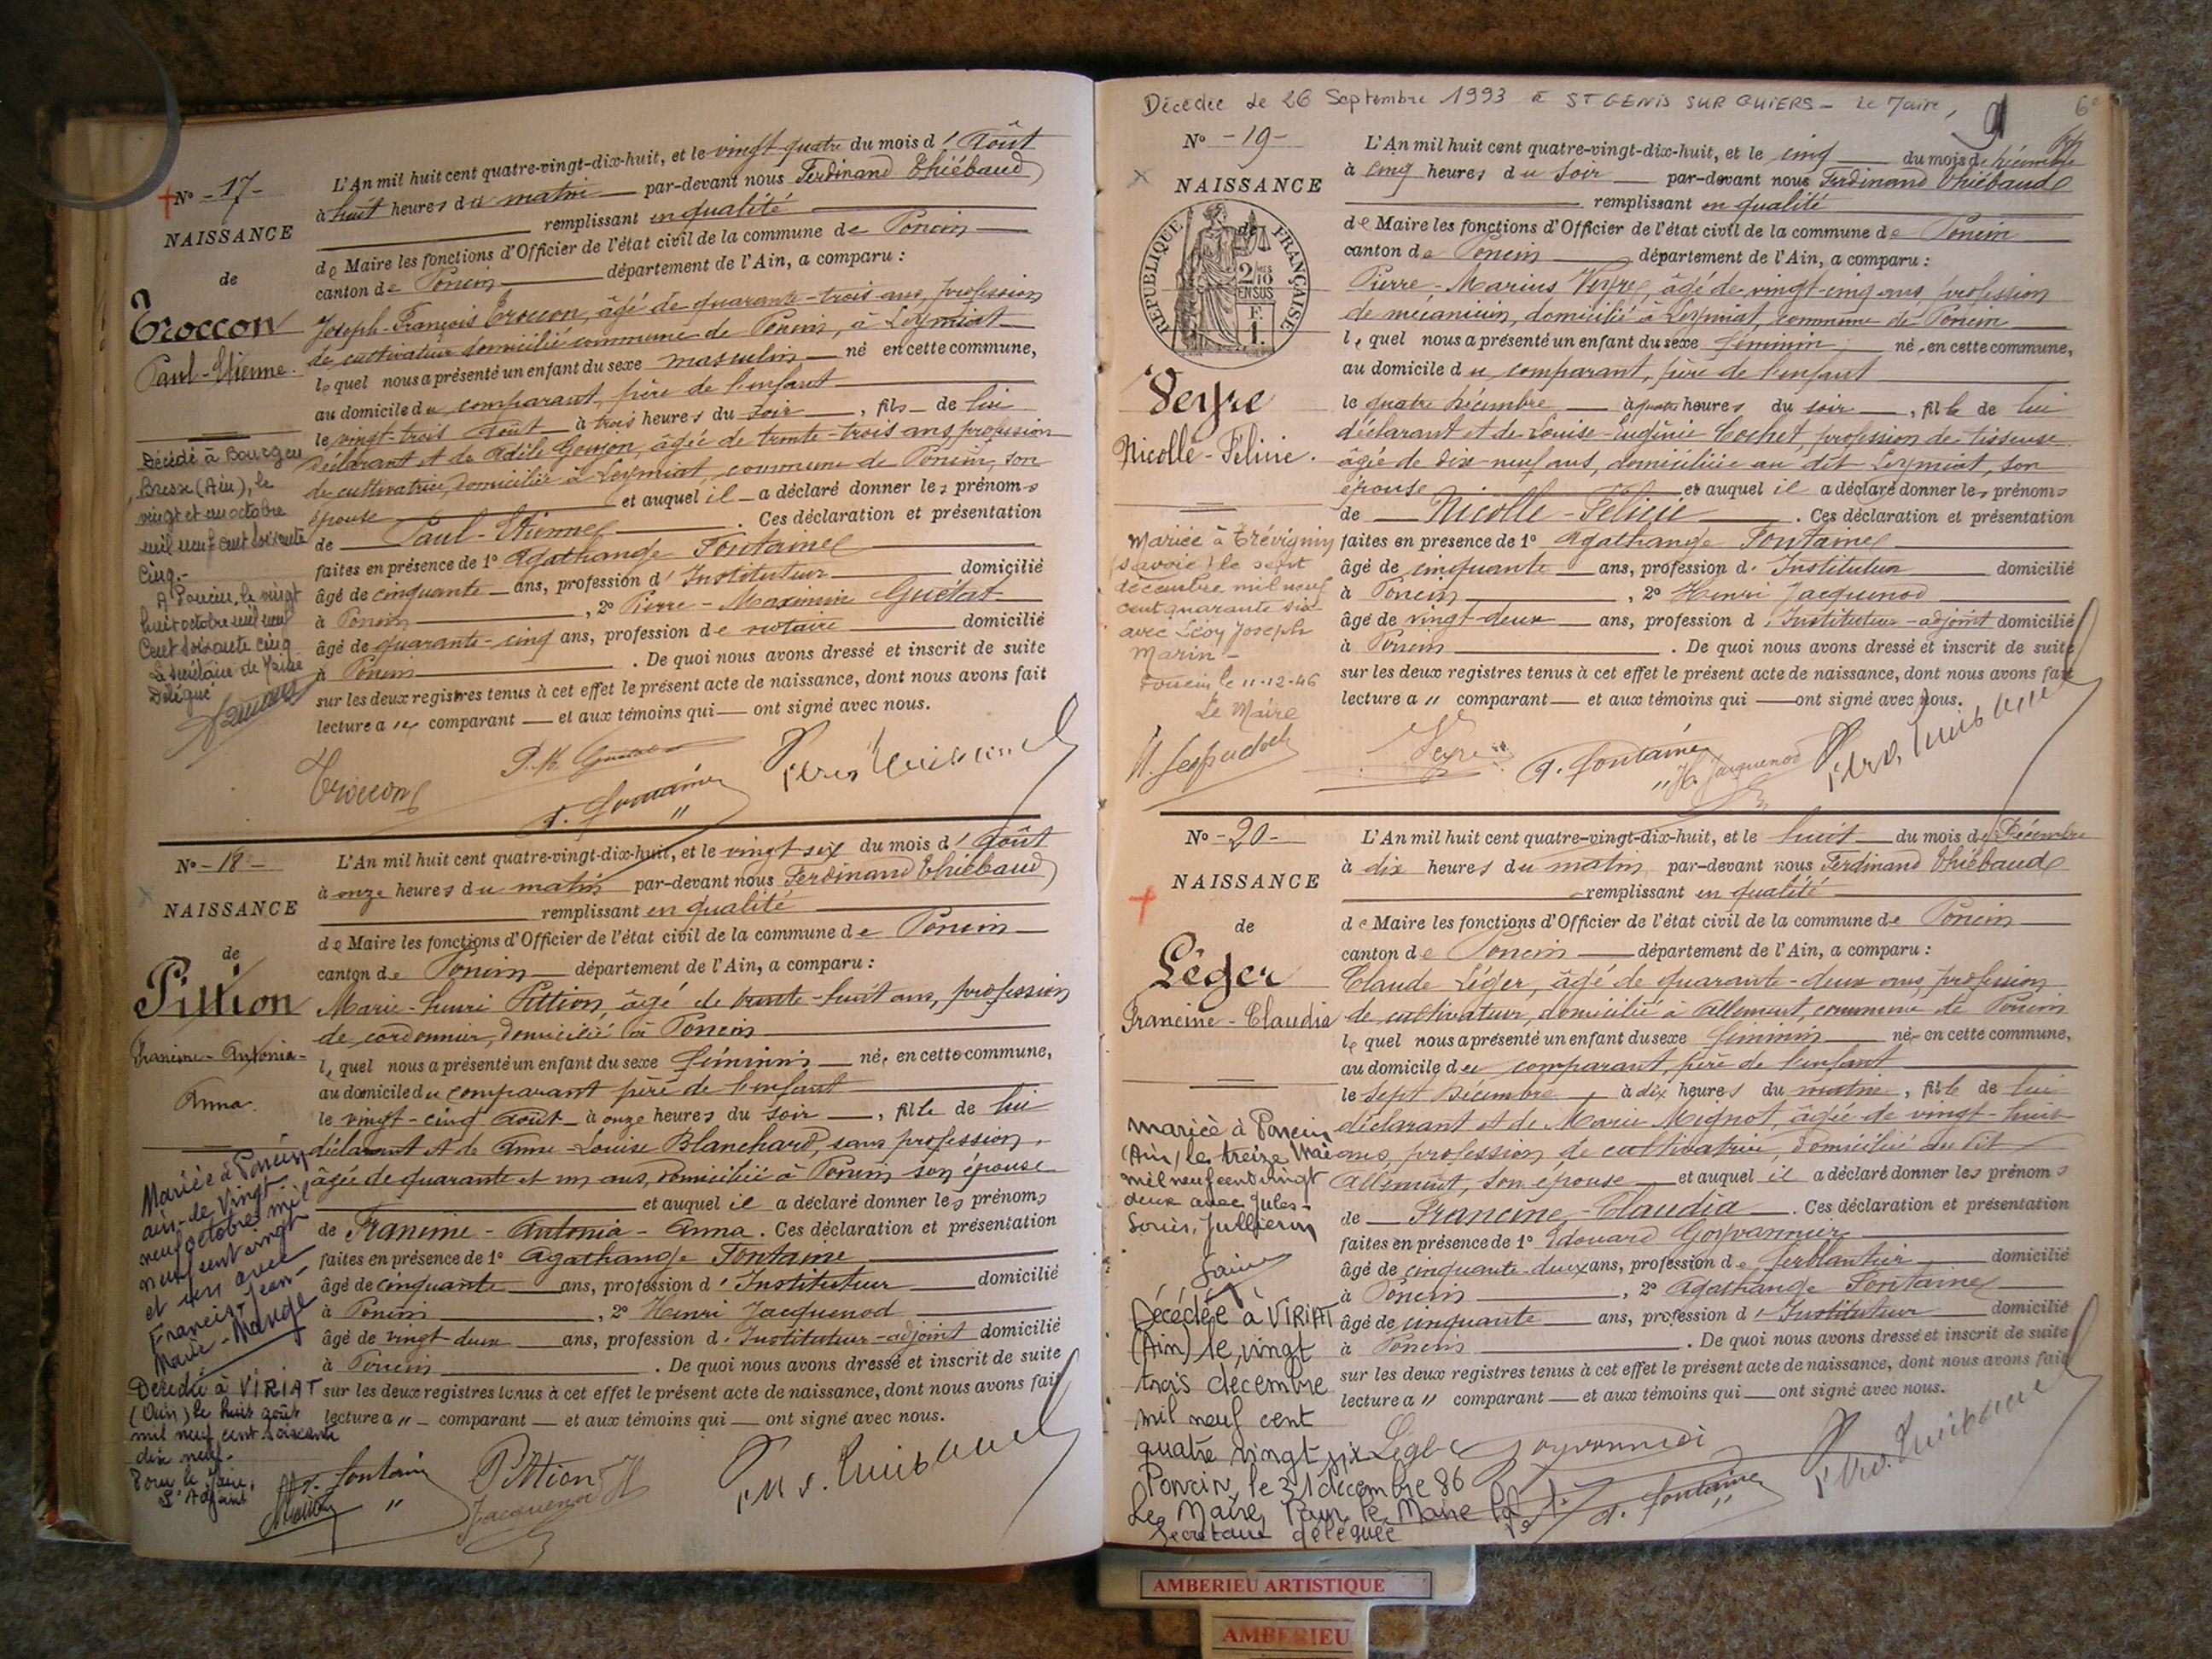 N° - 17 -
NAISSANCE
de
Troccon
Paul-Etienne.
Décédé à Bourg en
Bresse (Ain), le
vingt et un octobre
mil neuf cent soixante
cinq.-
A Poncin, le vingt
huit octobre mil neuf
Cent soixante cinq
Le secrétaire de Mairie
Délégué
L'An mil huit cent quatre-vingt-dix-huit, et le vingt-quatre du mois d'Août
à huit heures du matin par-devant nous Ferdinand Thiébaud
remplissant en qualité
de Maire les fonctions d'Officier de l'état civil de la commune de Poncin
canton de Poncin département de l'Ain, a comparu :
Joseph-François Troccon, âgé de quarante-trois ans, profession
de cultivateur domicilié commune de Poncin, à Leymiat
lequel nous a présenté un enfant du sexe masculin né en cette commune,
au domicile du comparant, père de l'enfant
le vingt-trois Août à trois heures du soir, fils de lui
déclarant et de Adèle Goujon, âgée de trente-trois ans profession
de cultivatrice, domiciliée à Leymiat, commune de Poncin, son
épouse et auquel il a déclaré donner les prénoms
de Paul-Etienne. Ces déclaration et présentation
faites en présence de 1° Agathange Fontaine
âgé de cinquante ans, profession d'Instituteur domicilié
à Poncin, 2° Pierre-Maximin Guétat
âgé de quarante-cinq ans, profession de notaire domicilié
à Poncin. De quoi nous avons dressé et inscrit de suite
sur les deux registres tenus à cet effet le présent acte de naissance, dont nous avons fait
lecture au comparant et aux témoins qui ont signé avec nous.
Troccon
A. Fontaine
N° - 18 -
NAISSANCE
de
Pittion
Francine-Antonia-
Anna.
Mariée à Poncin
ain le Vingt
neuf octobre mil
neuf cent vingt
et un avec
Francis Jean-
Marie-Mange
Décédée à VIRIAT
(Ain) le huit août
mil neuf cent soixante
dix neuf.
Pour le Maire,
L'Adjoint
L'An mil huit cent quatre-vingt-dix-huit, et le vingt-six du mois d'Août
à onze heures du matin par-devant nous Ferdinand Thiébaud
remplissant en qualité
de Maire les fonctions d'Officier de l'état civil de la commune de Poncin
canton de Poncin département de l'Ain, a comparu :
Marie-Henri Pittion, âgé de trente-huit ans, profession
de cordonnier, domicilié à Poncin
lequel nous a présenté un enfant du sexe féminin née en cette commune,
au domicile du comparant père de l'enfant
le vingt-cinq Août à onze heures du soir, fille de lui
déclarant et de Anne-Louise Blanchard, sans profession,
âgée de quarante et un ans, domiciliée à Poncin son épouse
et auquel il a déclaré donner les prénoms
de Francine-Antonia-Anna. Ces déclaration et présentation
faites en présence de 1° Agathange Fontaine
âgé de cinquante ans, profession d'Instituteur domicilié
à Poncin, 2° Henri Jacquenod
âgé de vingt deux ans, profession d'Instituteur-adjoint domicilié
à Poncin. De quoi nous avons dressé et inscrit de suite
sur les deux registres tenus à cet effet le présent acte de naissance, dont nous avons fait
lecture au comparant et aux témoins qui ont signé avec nous.
A. Fontaine Pittion H
Jacquenod
Décédée le 26 Septembre 1993 à ST GENIS SUR GUIERS - Le Maire,
N° - 19 -
NAISSANCE
de
RÉPUBLIQUE FRANÇAISE
2/10 EN SUS
F. 1.
Veyre
Nicolle-Félicie.
Mariée à Trévignin
(Savoie) le sept
décembre mil neuf
cent quarante six
avec Léoy Joseph
Marin -
Poncin le 11-12-46
Le Maire
L'An mil huit cent quatre-vingt-dix-huit, et le cinq du mois de Décembre
à cinq heures du soir par-devant nous Ferdinand Thiébaud
remplissant en qualité
de Maire les fonctions d'Officier de l'état civil de la commune de Poncin
canton de Poncin département de l'Ain, a comparu :
Pierre-Marius Veyre, âgé de vingt-cinq ans, profession
de mécanicien, domicilié à Leymiat, commune de Poncin
lequel nous a présenté un enfant du sexe féminin née en cette commune,
au domicile du comparant, père de l'enfant
le quatre Décembre à quatre heures du soir, fille de lui
déclarant et de Louise-Eugénie Cochet, profession de tisseuse
âgée de dix-neuf ans, domiciliée au dit Leymiat, son
épouse et auquel il a déclaré donner les prénoms
de Nicolle-Félicie. Ces déclaration et présentation
faites en présence de 1° Agathange Fontaine
âgé de cinquante ans, profession d'Instituteur domicilié
à Poncin, 2° Henri Jacquenod
âgé de vingt-deux ans, profession d'Instituteur-adjoint domicilié
à Poncin. De quoi nous avons dressé et inscrit de suite
sur les deux registres tenus à cet effet le présent acte de naissance, dont nous avons fait
lecture au comparant et aux témoins qui ont signé avec nous.
Veyre A. Fontaine H. Jacquenod
N° - 20 -
NAISSANCE
de
Léger
Francine-Claudia
Mariée à Poncin
(Ain) le treize Mai
mil neuf cent vingt
deux avec Jules-
Louis, Jullieron
Décédée à VIRIAT
(Ain) le, vingt
trois décembre
mil neuf cent
quatre vingt six
Poncin, le 31 décembre 86
Le Maire, Pour le Maire la
Secrétaire déléguée
L'An mil huit cent quatre-vingt-dix-huit, et le huit du mois de Décembre
à dix heures du matin par-devant nous Ferdinand Thiébaud
remplissant en qualité
de Maire les fonctions d'Officier de l'état civil de la commune de Poncin
canton de Poncin département de l'Ain, a comparu :
Claude Léger, âgé de quarante-deux ans, profession
de cultivateur, domicilié à Allement, commune de Poncin
lequel nous a présenté un enfant du sexe féminin née en cette commune,
au domicile du comparant, père de l'enfant
le sept Décembre à dix heures du matin, fille de lui
déclarant et de Marie Mignot, âgée de vingt-huit
ans, profession de cultivatrice, domiciliée au dit
Allement, son épouse et auquel il a déclaré donner les prénoms
de Francine-Claudia. Ces déclaration et présentation
faites en présence de 1° Edouard Goyvannier
âgé de cinquante-deux ans, profession de ferblantier domicilié
à Poncin, 2° Agathange Fontaine
âgé de cinquante ans, profession d'Instituteur domicilié
à Poncin. De quoi nous avons dressé et inscrit de suite
sur les deux registres tenus à cet effet le présent acte de naissance, dont nous avons fait
lecture au comparant et aux témoins qui ont signé avec nous.
Léger Goyvannier
A. Fontaine
AMBERIEU ARTISTIQUE
AMBERIEU